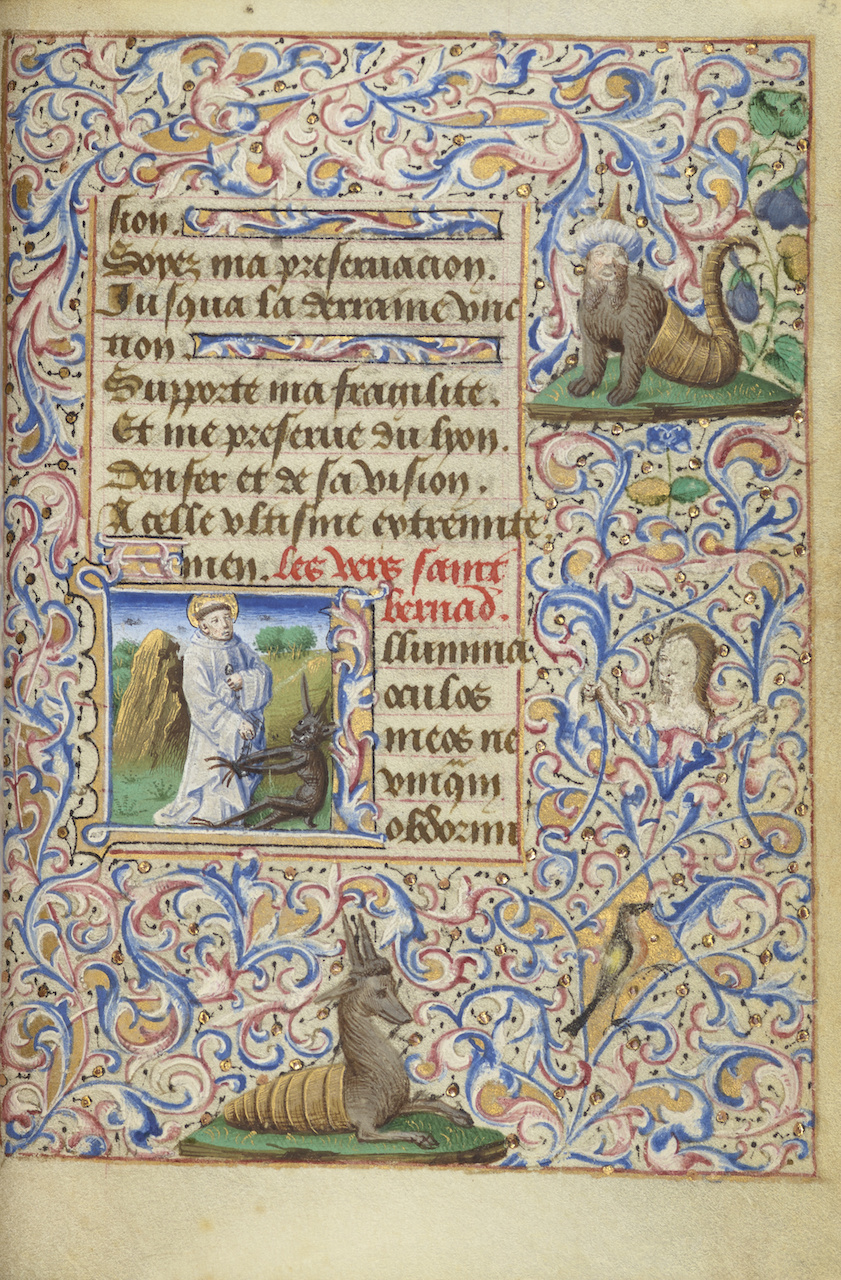 sion.
Soyez ma preseruacion.
Jusqua la derraine unc
tion.
Supporte ma fragilite.
Et me preserue du lyon.
Denfer et de sa vision.
A celle ultisme extremite
Amen. les vers sainct
bernad.
Illumina
oculos
meos ne
vmq̃m
obdormi